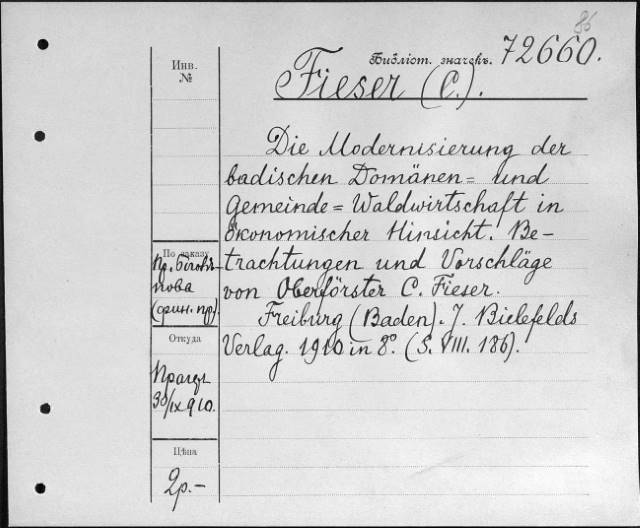 86
Библіот. значекъ. 72660.
Инв.
№
Fieser (C.).
Die Modernisierung der
badischen Domänen= und
Gemeinde= Waldwirtschaft in
ökonomischer Hinsicht. Be-
trachtungen und Vorschläge
von Oberförster C. Fieser.
Freiburg (Baden). J. Bielefelds
Verlag. 1910 in 8º. (S. VIII. 186).
По заказу
Пр.
нова
(фин. пр)
Откуда
30/IX 910.
Цѣна
2р.-